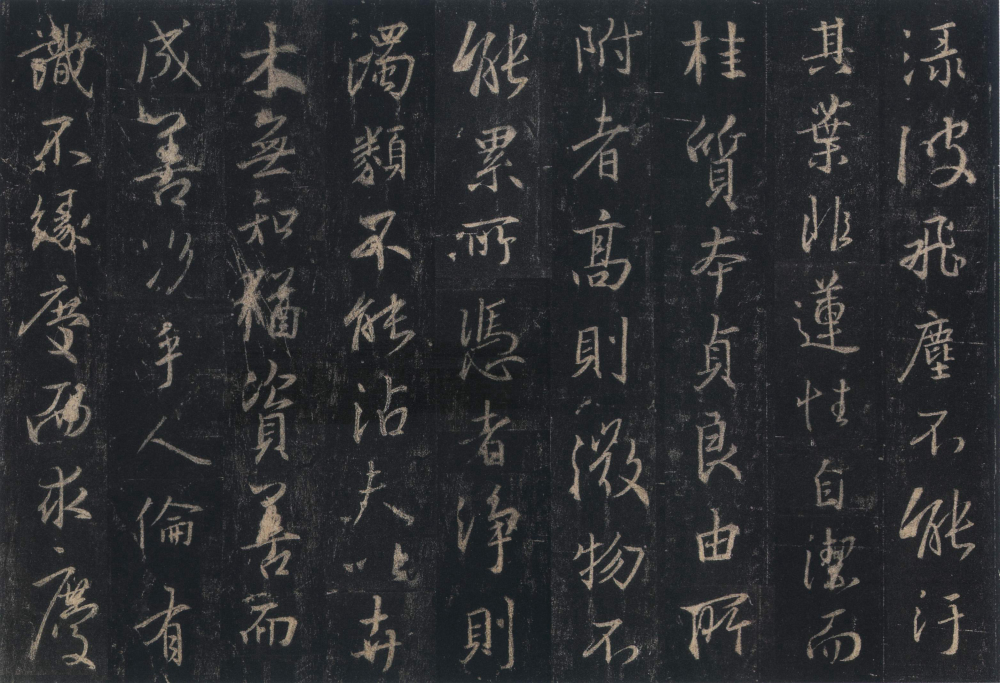 渌波飛塵不能汙
其葉非蓮性自潔而
桂質本貞良由所
附者高則微物不
能累所憑者淨則
濁類不能沾夫以卉
木無知猶資善而
成善况乎人倫有
識不緣慶而求慶